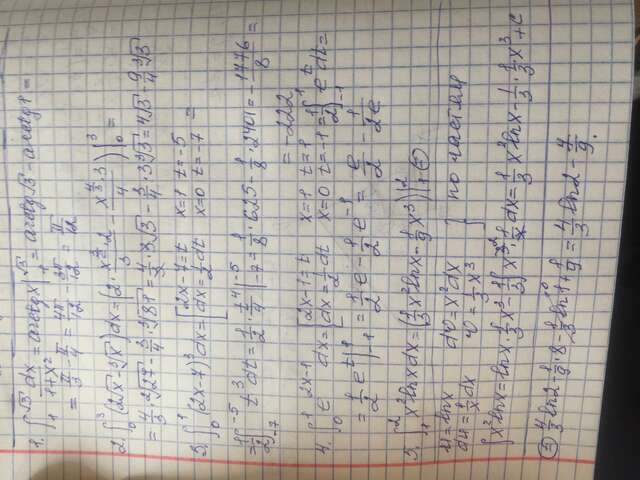 1. ∫₁^√3 1/(1+x²) dx = arctgx |₁^√3 = arctg√3 - arctg1 =
= π/3 - π/4 = 4π/12 - 3π/12 = π/12
2. ∫₀³ (2√x - ∛x) dx = (2 · x^(3/2) · 2/3 - x^(4/3) · 3/4) |₀³ =
= 4/3 · ²√27 - 3/4 · ³√81 = 4/3 · 3√3 - 3/4 · 3∛3 = 4√3 - 9/4 ∛3
3. ∫₀¹ (2x-7)³ dx = [2x-7=t x=1 t=-5
dx = 1/2 dt x=0 t=-7 =
= 1/2 ∫₋₇⁻⁵ t³ dt = 1/2 · t⁴/4 |₋₇⁻⁵ = 1/8 · 625 - 1/8 · 2401 = - 1776/8 =
= -222
4. ∫₀¹ e^(2x-1) dx = [2x-1=t x=1 t=1
dx = 1/2 dt x=0 t=-1 = 1/2 ∫₋₁¹ e^t dt =
= 1/2 e^t |₋₁¹ = 1/2 e - 1/2 e⁻¹ = e/2 - 1/2e
5. ∫₁² x² lnx dx = (1/3 x³ lnx - 1/9 x³) |₁² =
u = lnx dv = x² dx
du = 1/x dx v = 1/3 x³ } по частям
∫ x² lnx = lnx · 1/3 x³ - 1/3 ∫ x³ · 1/x dx = 1/3 x³ lnx - 1/3 · 1/3 x³ + C